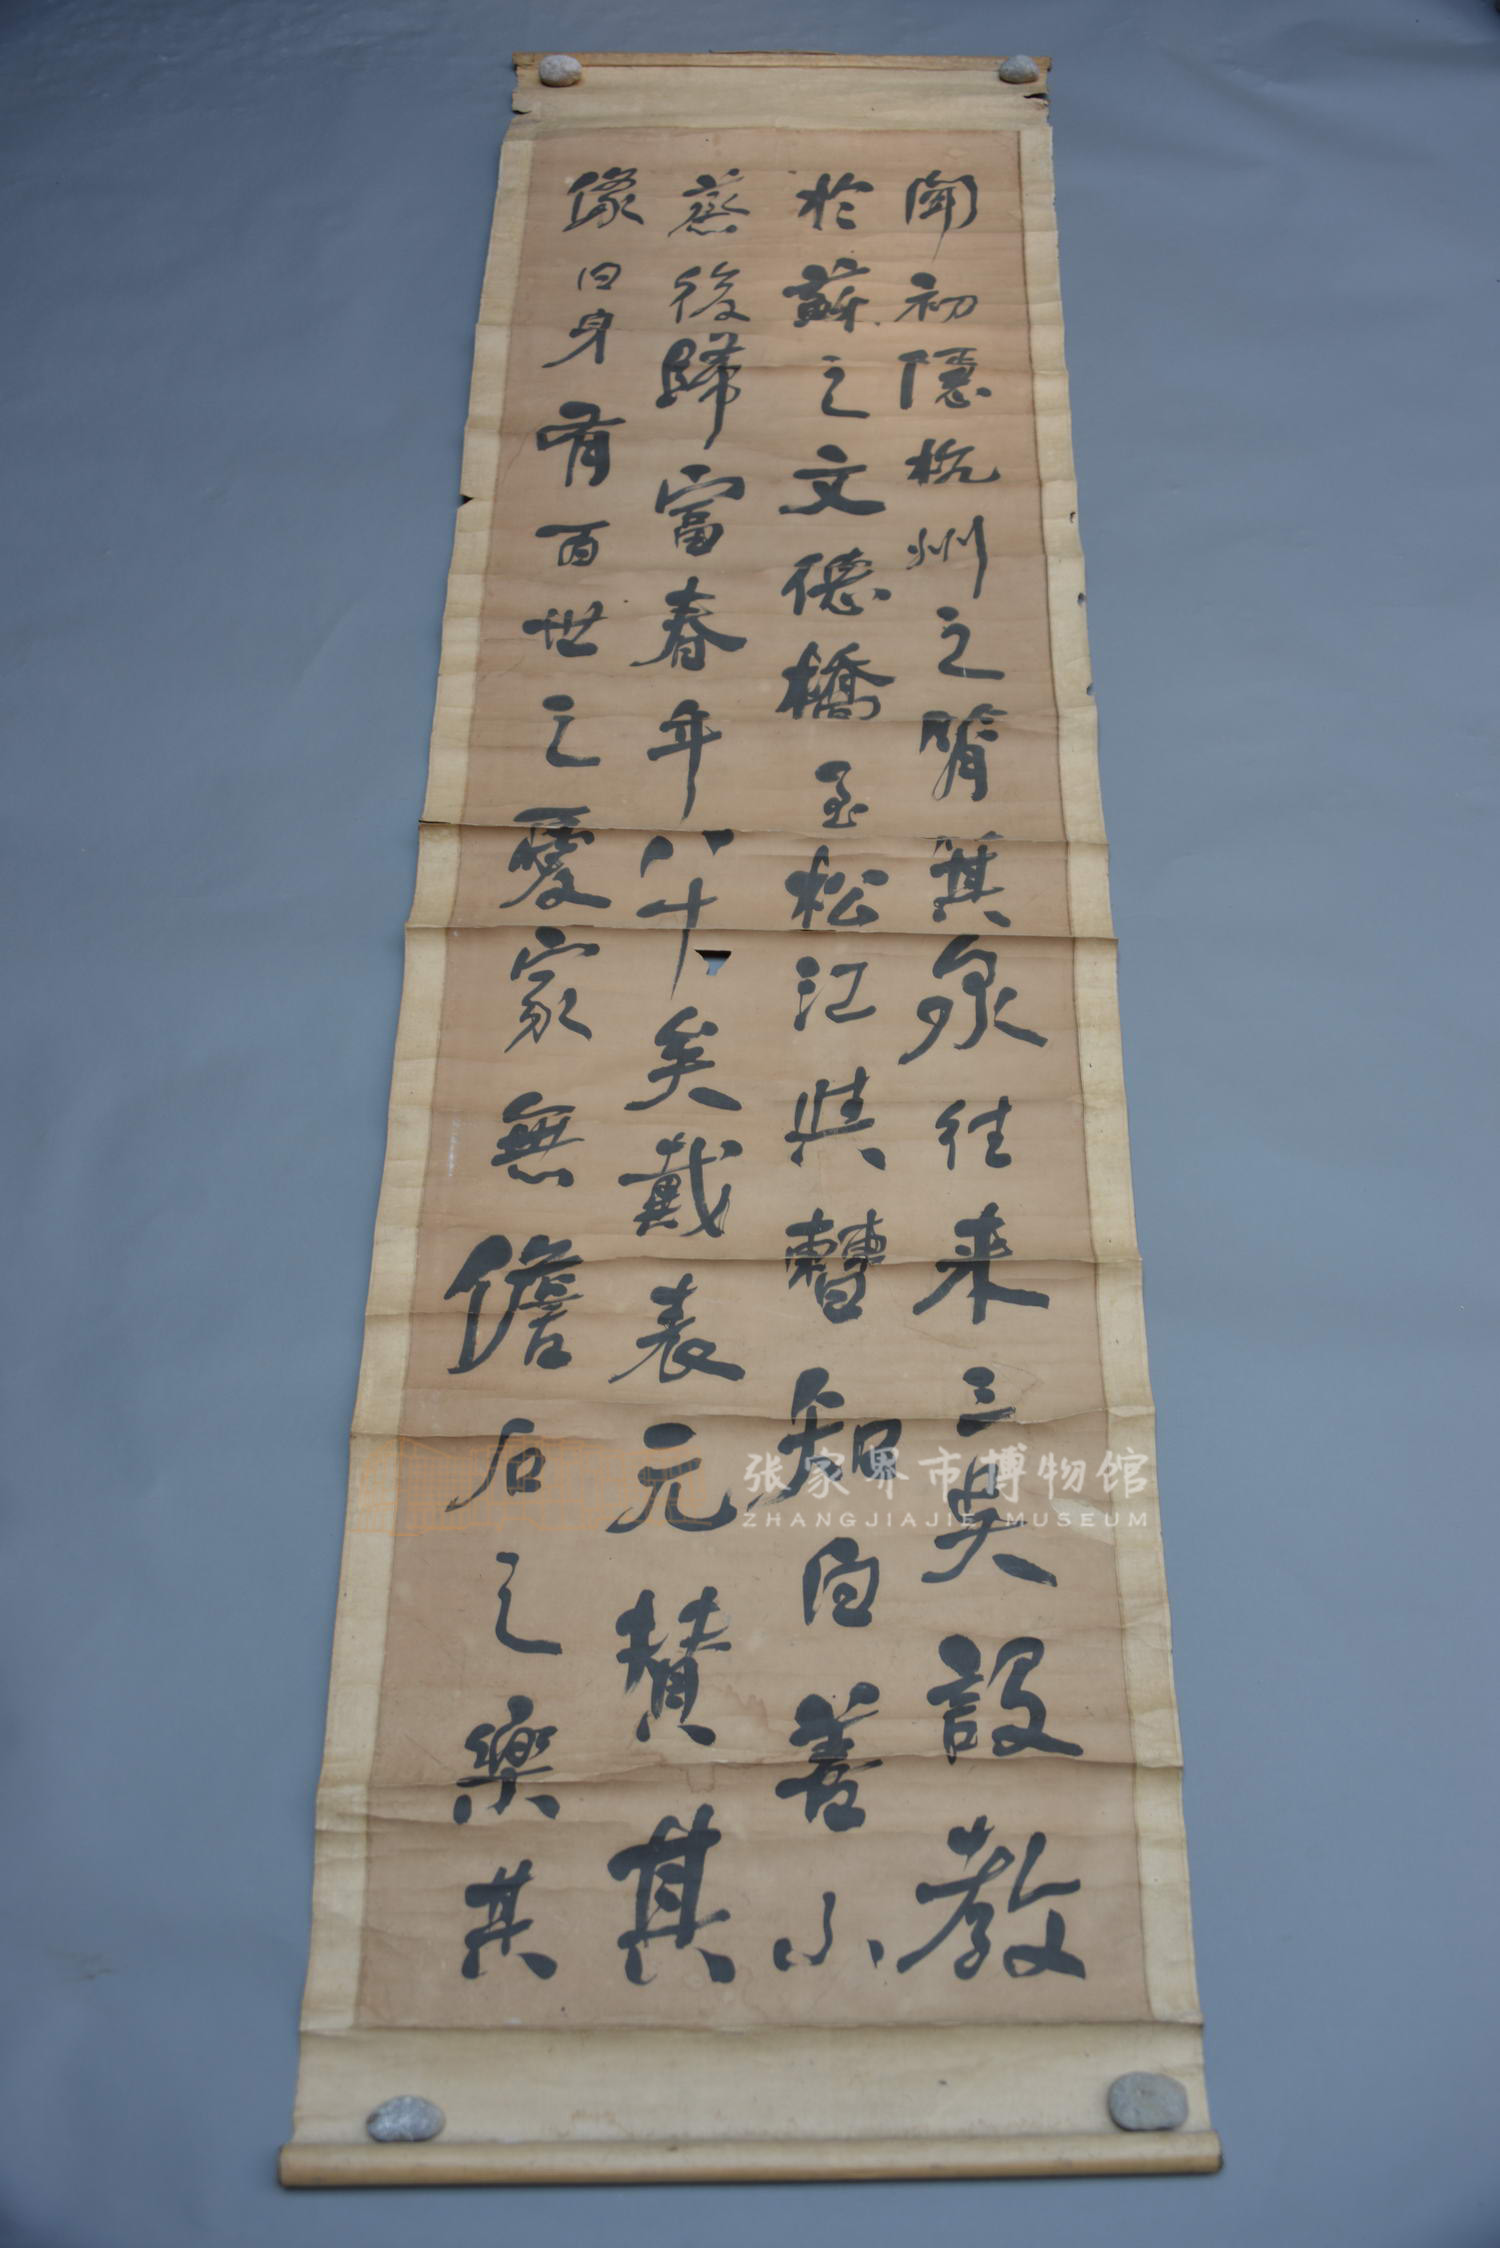 初隱杭州之筲箕泉往來三吳設教
於蘇之文德橋至松江與曹知白善小
蒸後歸富春年八十矣戴表元贊其
像曰身有百世之憂家無儋石之樂其
张家界市博物馆
ZHANGJIAJIE MUSEUM